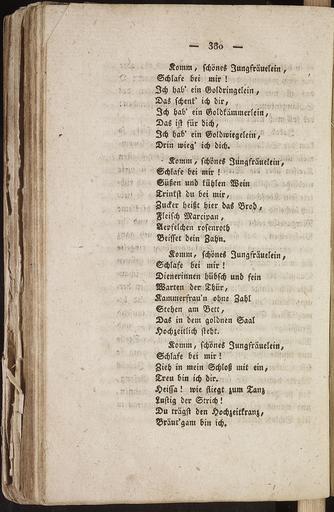 — 380 —
Komm, schönes Jungfräuelein,
Schlafe bei mir!
Ich hab' ein Goldringelein,
Das schenk' ich dir,
Ich hab' ein Goldkämmerlein,
Das ist für dich,
Ich hab' ein Goldwiegelein,
Drin wieg' ich dich.
Komm, schönes Jungfräuelein,
Schlafe bei mir!
Süßen und kühlen Wein
Trinkst du bei mir,
Zucker heißt hier das Brod,
Fleisch Marcipan,
Aepfelchen rosenroth
Beisset dein Zahn.
Komm, schönes Jungfräuelein,
Schlafe bei mir!
Dienerinnen hübsch und fein
Warten der Thür,
Kammerfrau'n ohne Zahl
Stehen am Bett,
Das in dem goldnen Saal
Hochzeitlich steht.
Komm, schönes Jungfräuelein,
Schlafe bei mir!
Zieh in mein Schloß mit ein,
Treu bin ich dir.
Heissa! wie fliegt zum Tanz
Lustig der Strich!
Du trägst den Hochzeitkranz,
Bräut'gam bin ich.